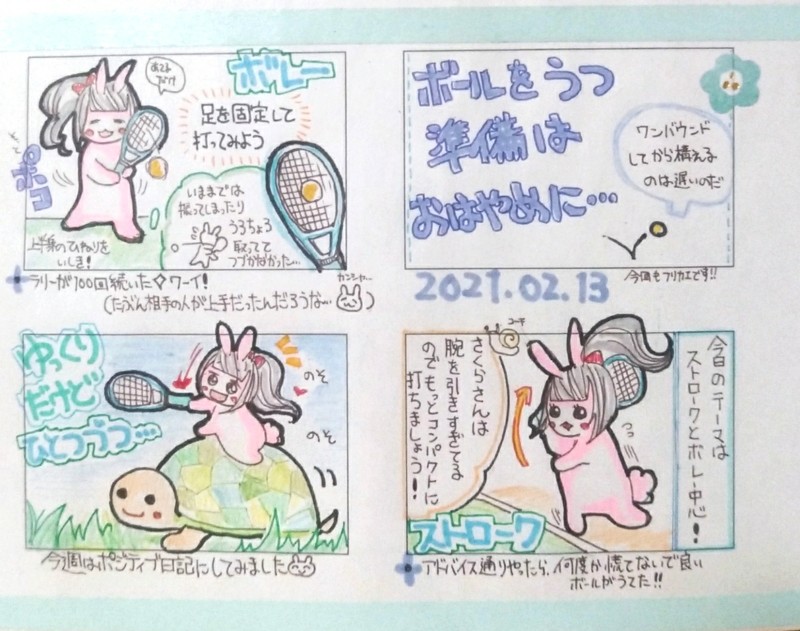 ボールをうつ
準備は
おはやめに…
ワンバウンド
してから構える
のは遅いのだ
2021.02.13
今週もフリカエです!!
今日のテーマは
ストロークとボレー中心!
コーチ
さくらさんは
腕を引きすぎてる
のでもっとコンパクトに
打ちましょう!
ストローク
アドバイス通りやったら、何度か慌てないで良い
ボールがうてた!!
ボレー
足を固定して
打ってみよう
ポコ
いままでは
振ってしまったり
うろちょろ
取ってて
つづかなかった…
上半身のひねりを
いしき!
ラリーが100回続いた✧ワーイ!
(たぶん相手の人が上手だったんだろうな… )
カンシャ…
ゆっくり
だけど
ひとつづつ…
のそ
のそ
今週はポジティブ日記にしてみました